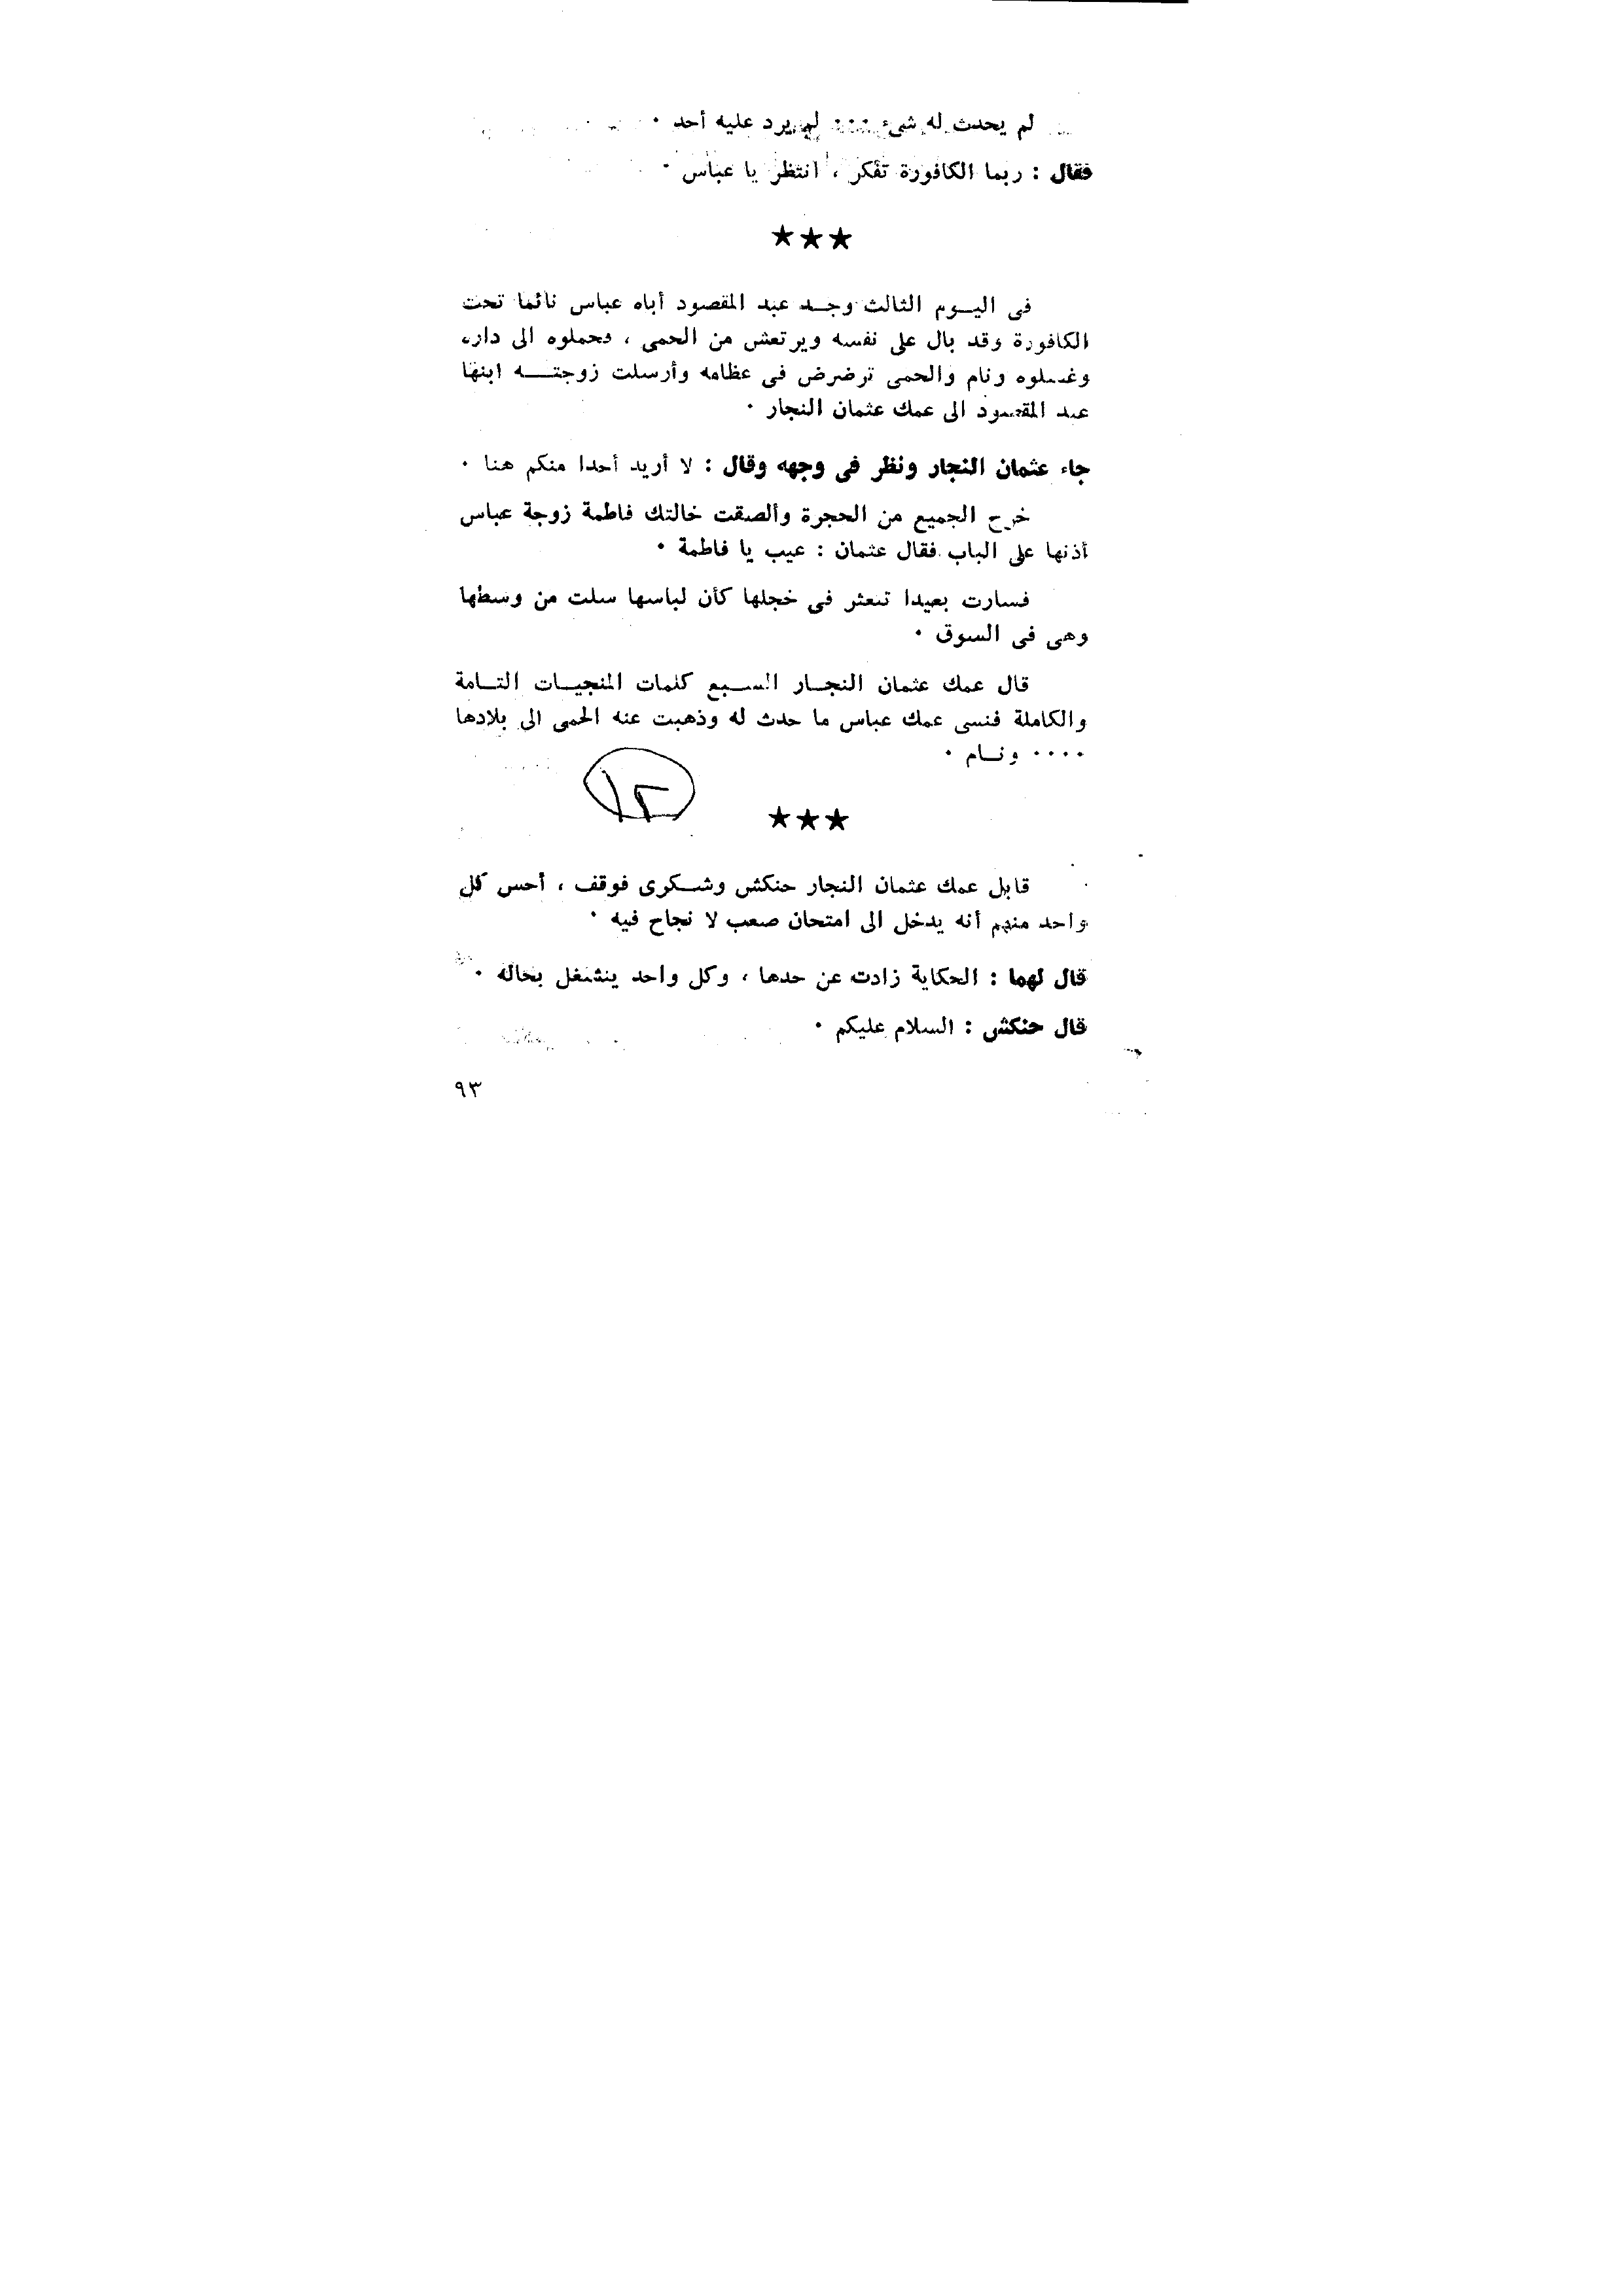 لم يحدث له شىء ٠٠٠ لم يرد عليه أحد ٠
فقال : ربما الكافورة تفكر ، انتظر يا عباس ٠
★★★
فى اليـوم الثالث وجـد عبد المقصود أباه عباس نائما تحت
الكافورة وقد بال على نفسه ويرتعش من الحمى ، فحملوه الى داره
وغسلوه ونام والحمى ترضرض فى عظامه وأرسلت زوجتـه ابنها
عبد المقصود الى عمك عثمان النجار ٠
جاء عثمان النجار ونظر فى وجهه وقال : لا أريد أحدا منكم هنا ٠
خرج الجميع من الحجرة وألصقت خالتك فاطمة زوجة عباس
أذنها على الباب فقال عثمان : عيب يا فاطمة ٠
فسارت بعيدا تتعثر فى خجلها كأن لباسها سلت من وسطها
وهى فى السوق ٠
قال عمك عثمان النجـار السـبع كلمات المنجيـات التـامة
والكاملة فنسى عمك عباس ما حدث له وذهبت عنه الحمى الى بلادها
٠٠٠٠ ونـام ٠
١٢
★★★
قابل عمك عثمان النجار حنكش وشـكرى فوقف ، أحس كل
واحد منهم أنه يدخل الى امتحان صعب لا نجاح فيه ٠
قال لهما : الحكاية زادت عن حدها ، وكل واحد ينشغل بحاله ٠
قال حنكش : السلام عليكم ٠
٩٣